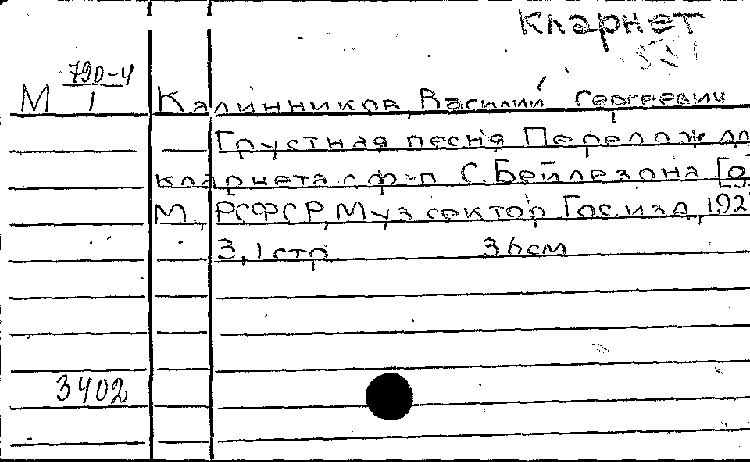 Кларнет
М 790-4
1
Калинников, Василий Сергеевич
Грустная песня Перелож дл
кларнета с ф-п С. Бейлезона [о
М., РСФСР, Муз сектор Гос. изд, 192
3, 1 стр 36см
3402